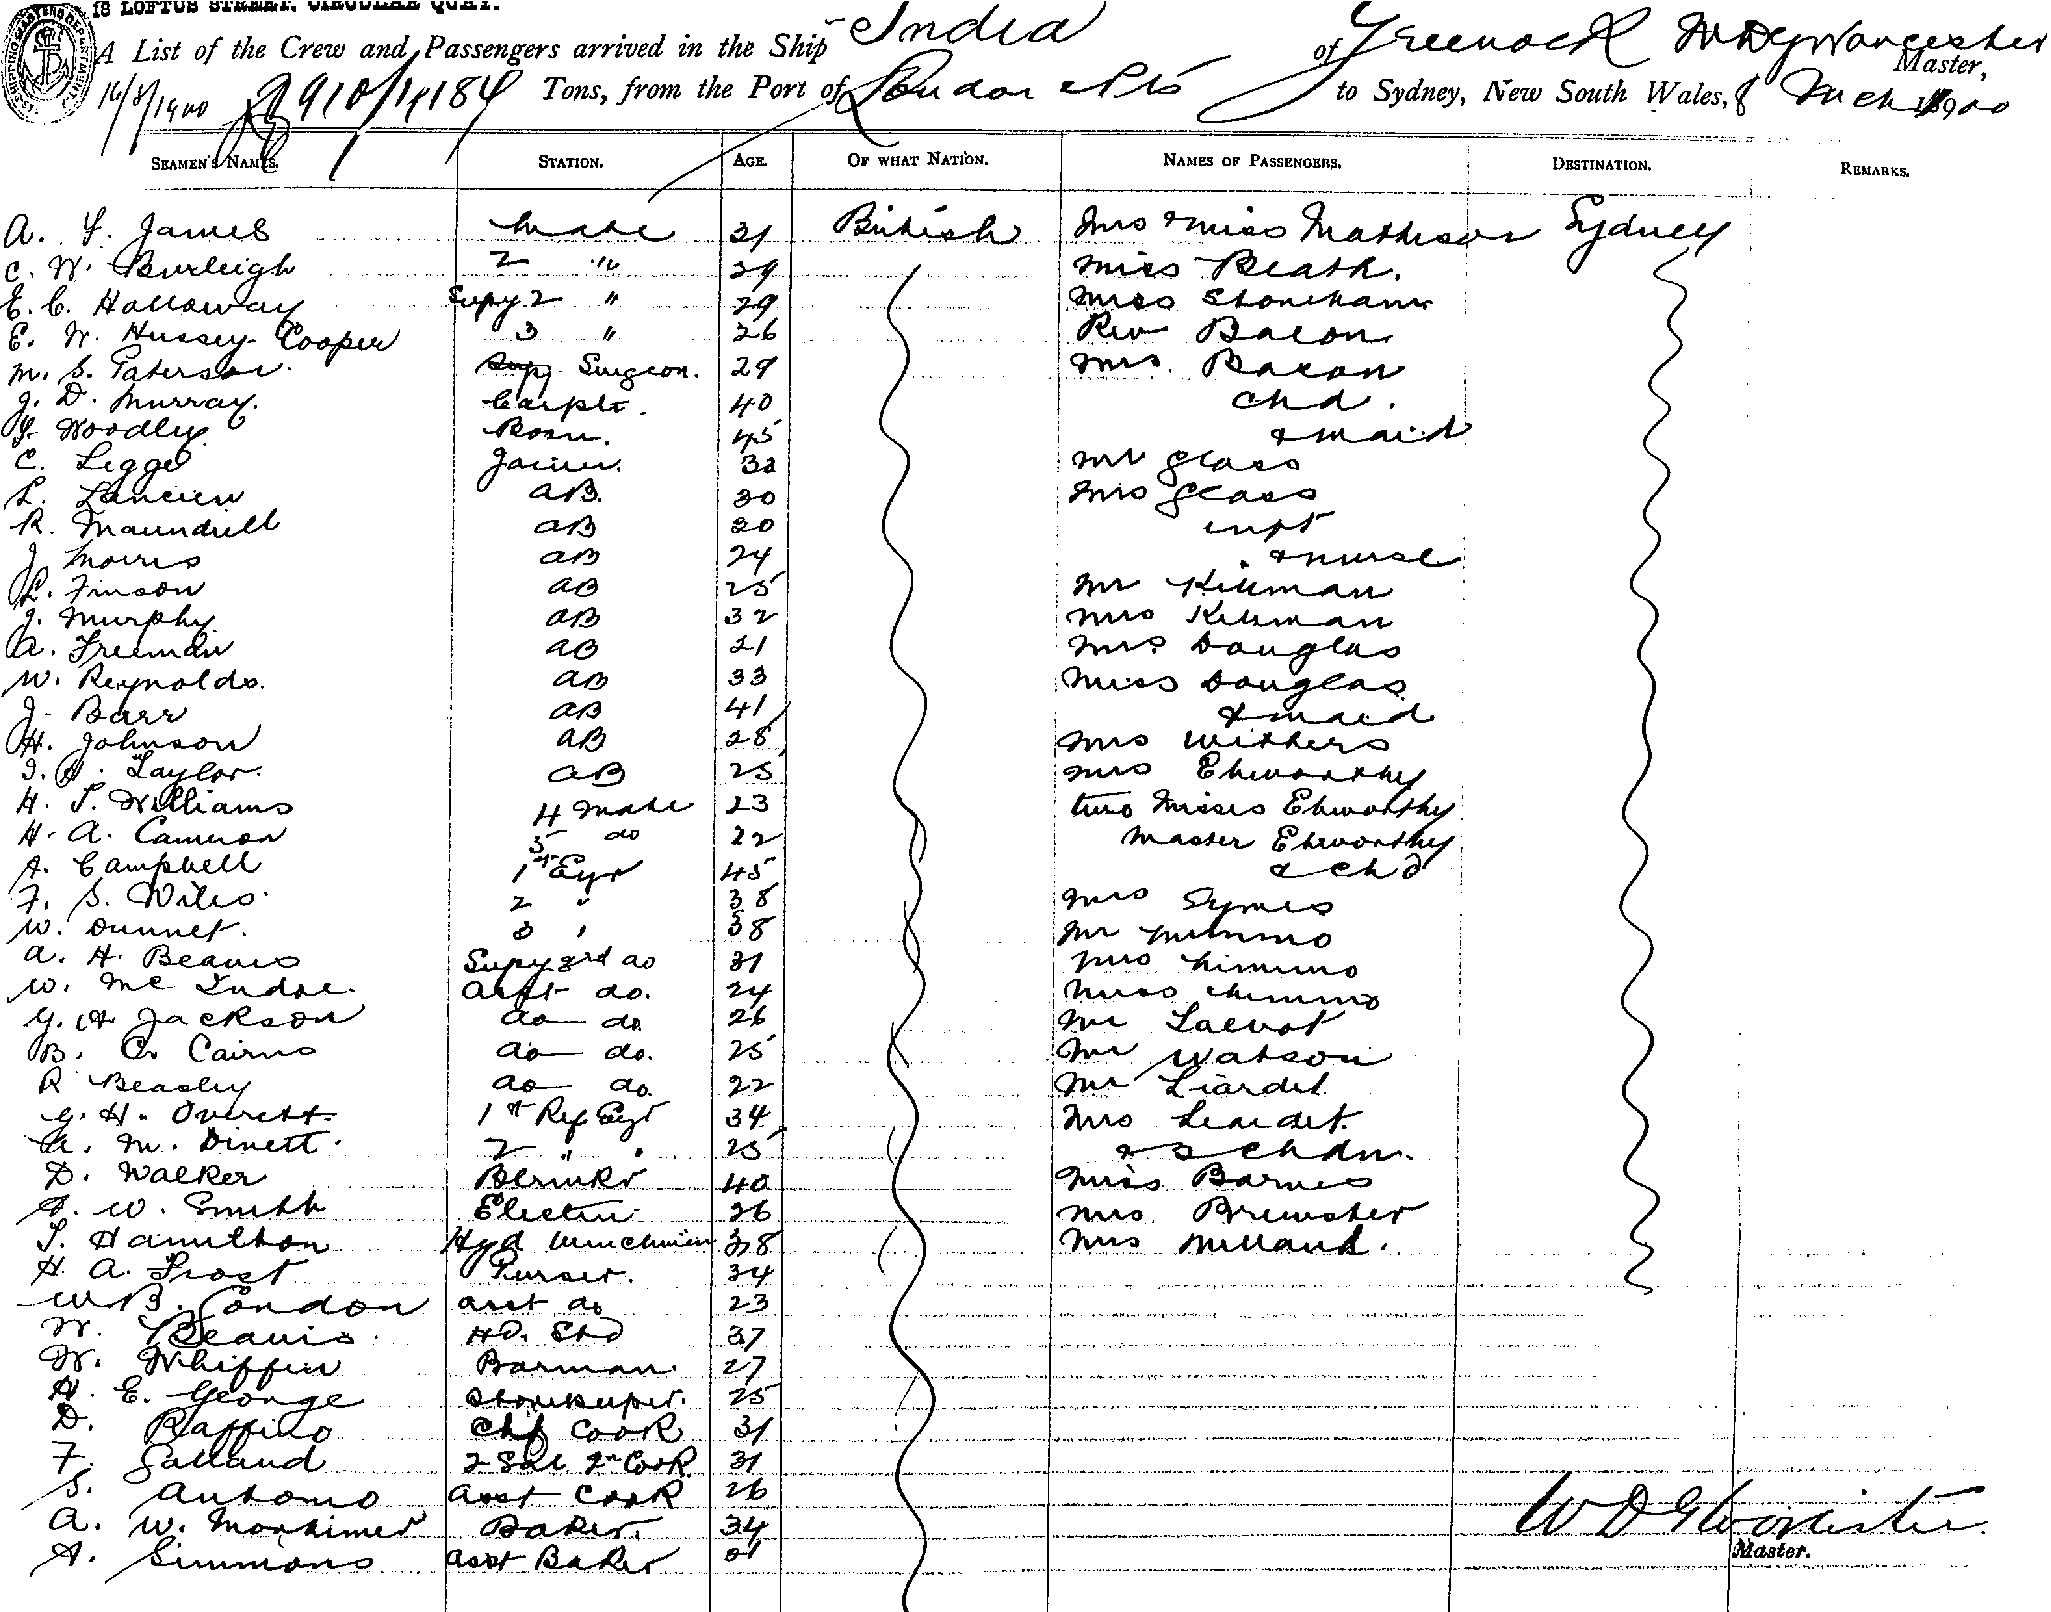 18 LOFTUS STREET, CIRCULAR QUAY.
A List of the Crew and Passengers arrived in the Ship India of Greenock W D G Worcester Master,
16/3/1900 7910/4184 Tons, from the Port of London &c to Sydney, New South Wales, Mch 1900
SEAMEN'S NAMES. STATION. AGE. OF WHAT NATION. NAMES OF PASSENGERS. DESTINATION. REMARKS.
James Mate 31 British Mrs & Miss Matheson Sydney
C. W. Burleigh 2 " 29 Miss Heath.
E. C. Holloway Supy 2 " 29 Miss Stoneham
E. W. Hussey-Cooper 3 " 26 Rev Bacon
M. S. Paterson. Surgeon. 29 Mrs. Bacon
J. D. Murray. Carptr. 40 chd.
Woodley Bosn. 45 & maid
C. Legge Joiner. 32 Mr Glass
L. Lancien AB. 30 Mrs Glass
R. Maundrell AB 20 inft
J. Morris AB 24 & nurse
L. Finson AB 25 Mr Killman
J. Murphy AB 32 Mrs Killman
A. Freeman AB 21 Mrs Douglas
W. Reynolds. AB 33 Miss Douglas
J. Barr AB 41 & maid
H. Johnson AB 28 Mrs Withers
Taylor. AB 25 Mrs Elworthy
H. T. Williams 4 Mate 23 two Misses Elworthy
H. A. Cameron 5 do 22 Master Elworthy
A. Campbell 1st Egr 45 & chd
F. S. Wiles. 2 " 38 Mrs Symes
W. Dunnet. 3 " 38 Mr Nimmo
A. H. Beavis Supy 3rd do 31 Mrs Nimmo
W. McIndoe. Asst do. 24 Miss Nimmo
G. H. Jackson do do. 26 Mr Talbot
B. C. Cairns do do. 25 Mr Watson
R Beasley do do. 22 Mr Liardet
G. H. Overett. 1st Ref Egr 34 Mrs Liardet.
A. M. Dinett. 2 " " 25 & 2 chdn.
D. Walker Blrmkr 40 Miss Barnes
W. Smith Electn 26 Mrs Brewster
T. Hamilton Hyd Winchman 38 Mrs Milland.
H. A. Frost Purser. 34
W. B. Condon Asst do 23
W. Beavis. Hd. Std 37
W. Whiffin Barman. 27
H. E. George Storekeeper. 25
D. Raffino Chf Cook 31
F. Galland 2nd Cook 31
S. Antonio Asst Cook 26
A. W. Mortimer Baker. 34
A. Simmons Asst Baker
W D G Worcester
Master.